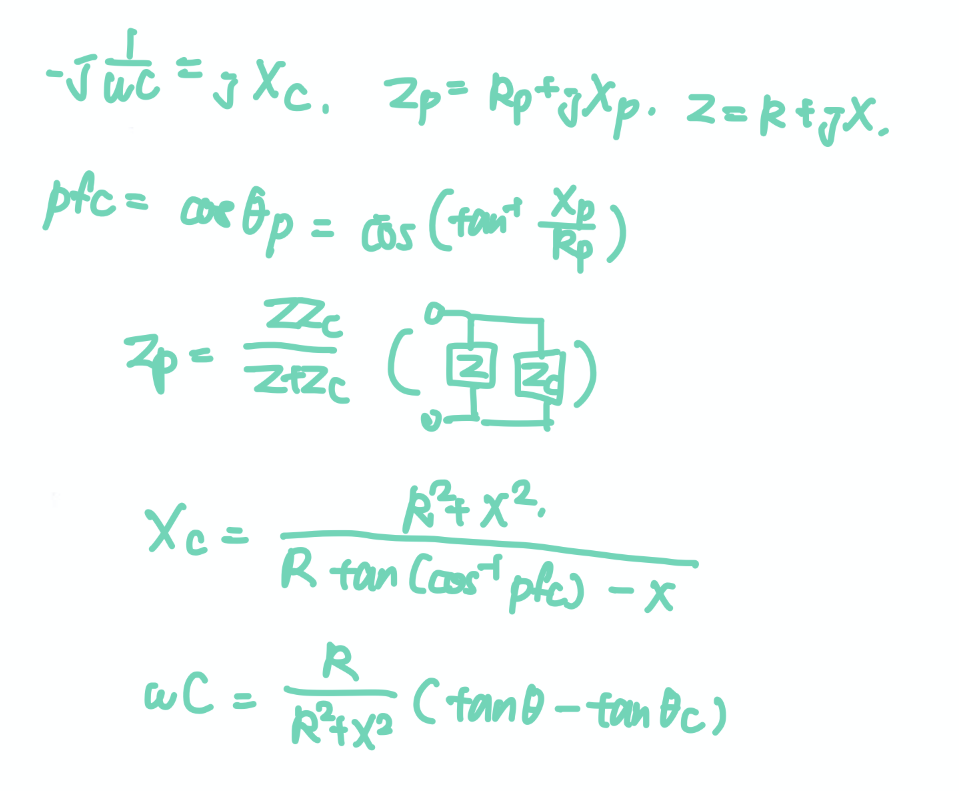 -j 1/ωC = jXc. Zp = Rp + jXp. Z = R + jX.
pfc = cosθp = cos(tan⁻¹ Xp/Rp)
Zp = ZZc/(Z+Zc) ( Z Zc )
Xc = (R² + X².)/(R tan(cos⁻¹ pfc) - X)
ωC = R/(R²+X²) (tanθ - tanθc)